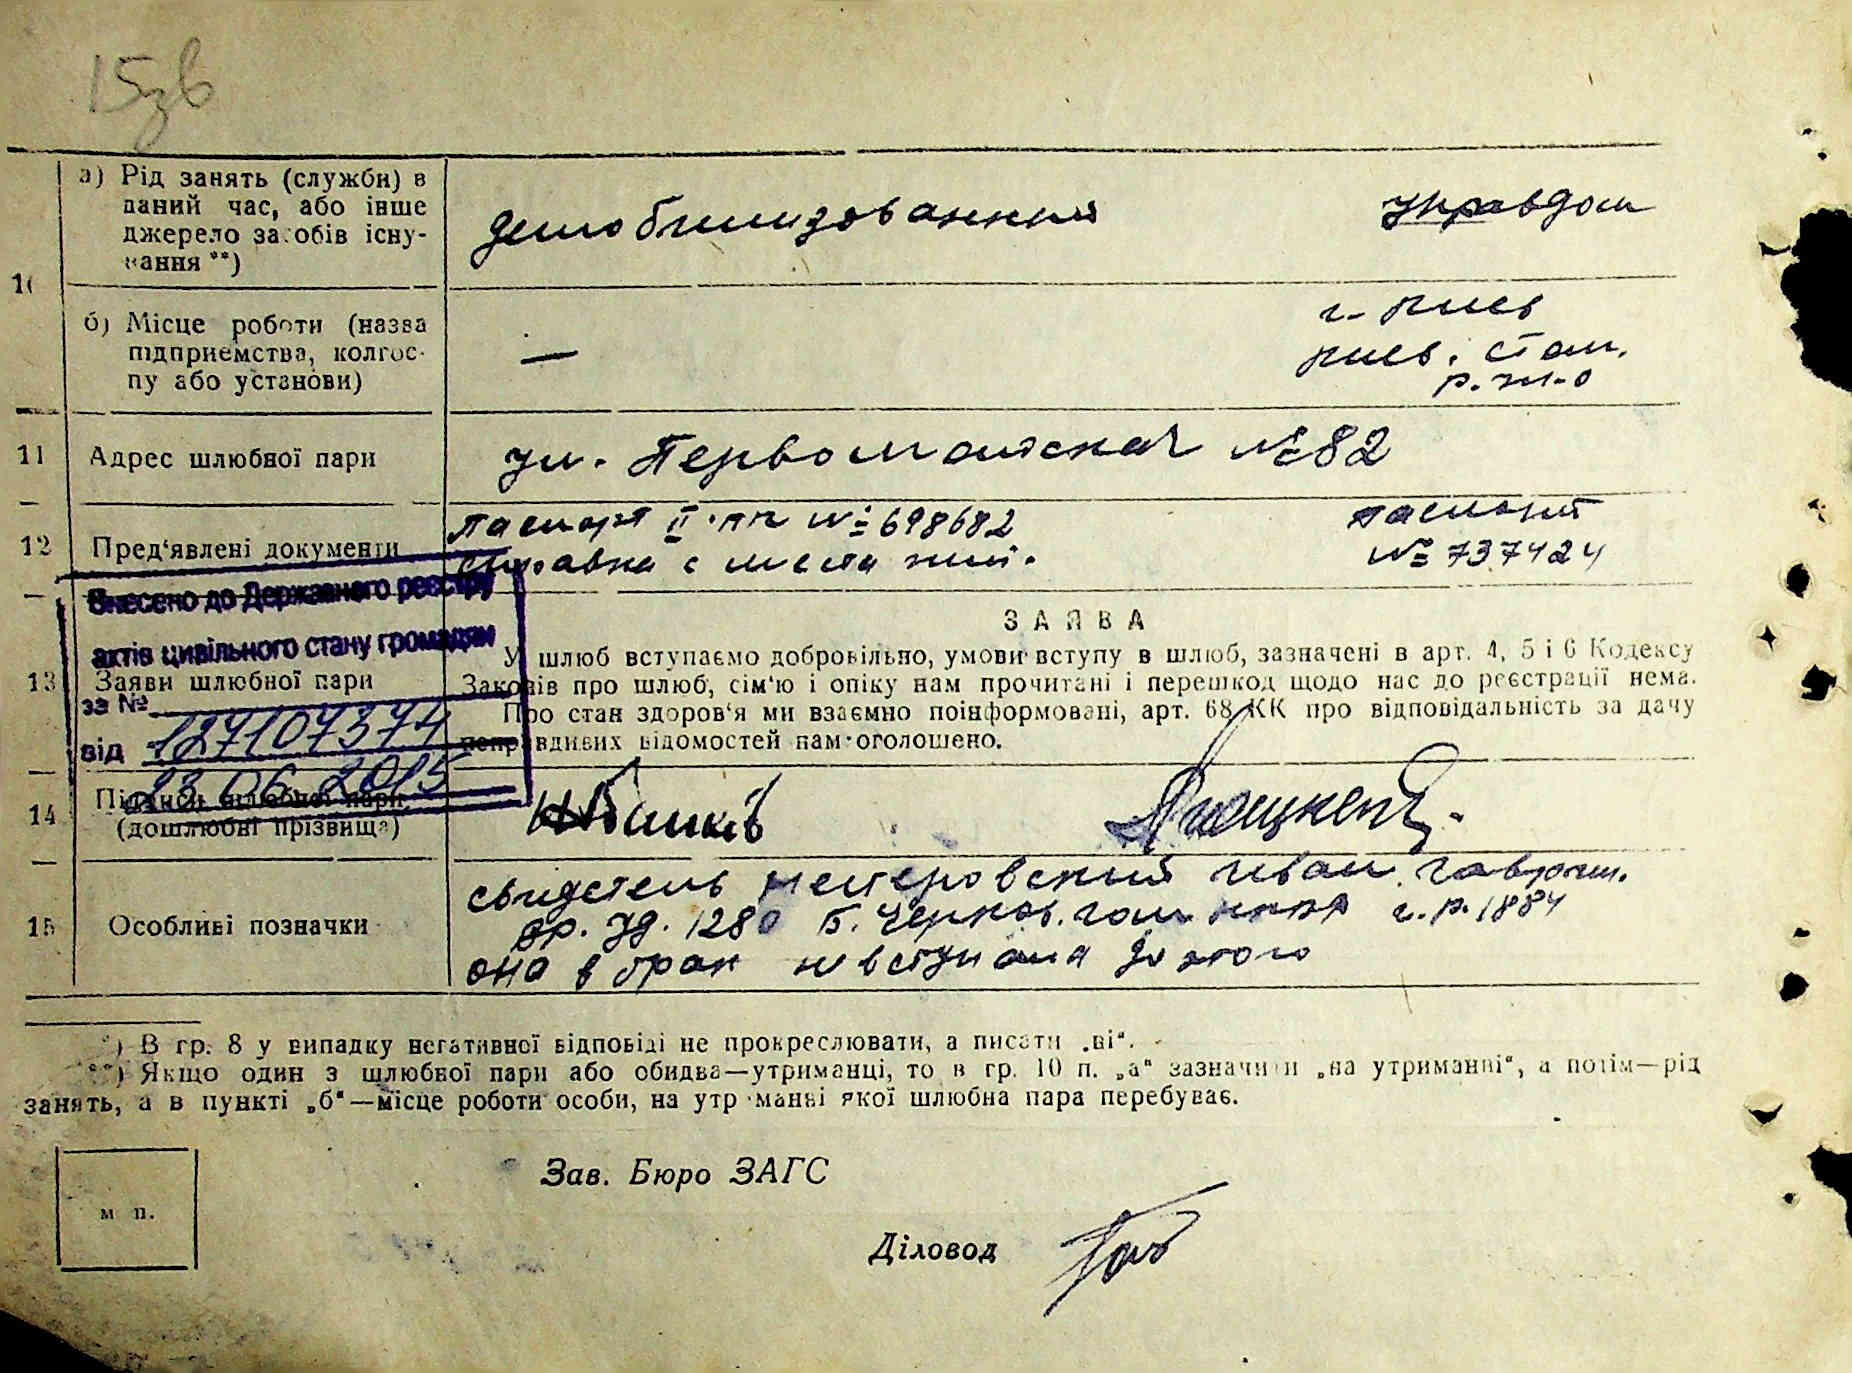 15зв
а) Рід занять (служби) в
даний час, або інше
джерело засобів існу-
вання **)
демобилизованный
управдом
10
б) Місце роботи (назва
підприємства, колгос-
пу або установи)
—
г. Киев
Киев. Стал.
р. ж.о
11 Адрес шлюбної пари
ул. Первомайская №82
12 Пред'явлені документи
паспорт II № 698682
справка с места жит.
паспорт
№ 737424
Внесено до Державного реєстру
актів цивільного стану громадян
за №
127107374
від 23.06.2015
13 Заяви шлюбної пари
ЗАЯВА
У шлюб вступаємо добровільно, умови вступу в шлюб, зазначені в арт. 4, 5 і 6 Кодексу
Законів про шлюб, сім'ю і опіку нам прочитані і перешкод щодо нас до реєстрації нема.
Про стан здоров'я ми взаємно поінформовані, арт. 68 КК про відповідальність за дачу
неправдивих відомостей нам оголошено.
14 Підписи шлюбної пари
(дошлюбні прізвища)
15 Особливі позначки
свидетель Иван
1280 г.р. 1884
она в брак не вступала до этого
*) В гр. 8 у випадку негативної відповіді не прокреслювати, а писати „ні“.
**) Якщо один з шлюбної пари або обидва—утриманці, то в гр. 10 п. „а“ зазначити „на утриманні“, а потім—рід
занять, а в пункті „б“—місце роботи особи, на утриманні якої шлюбна пара перебуває.
Зав. Бюро ЗАГС
м п.
Діловод